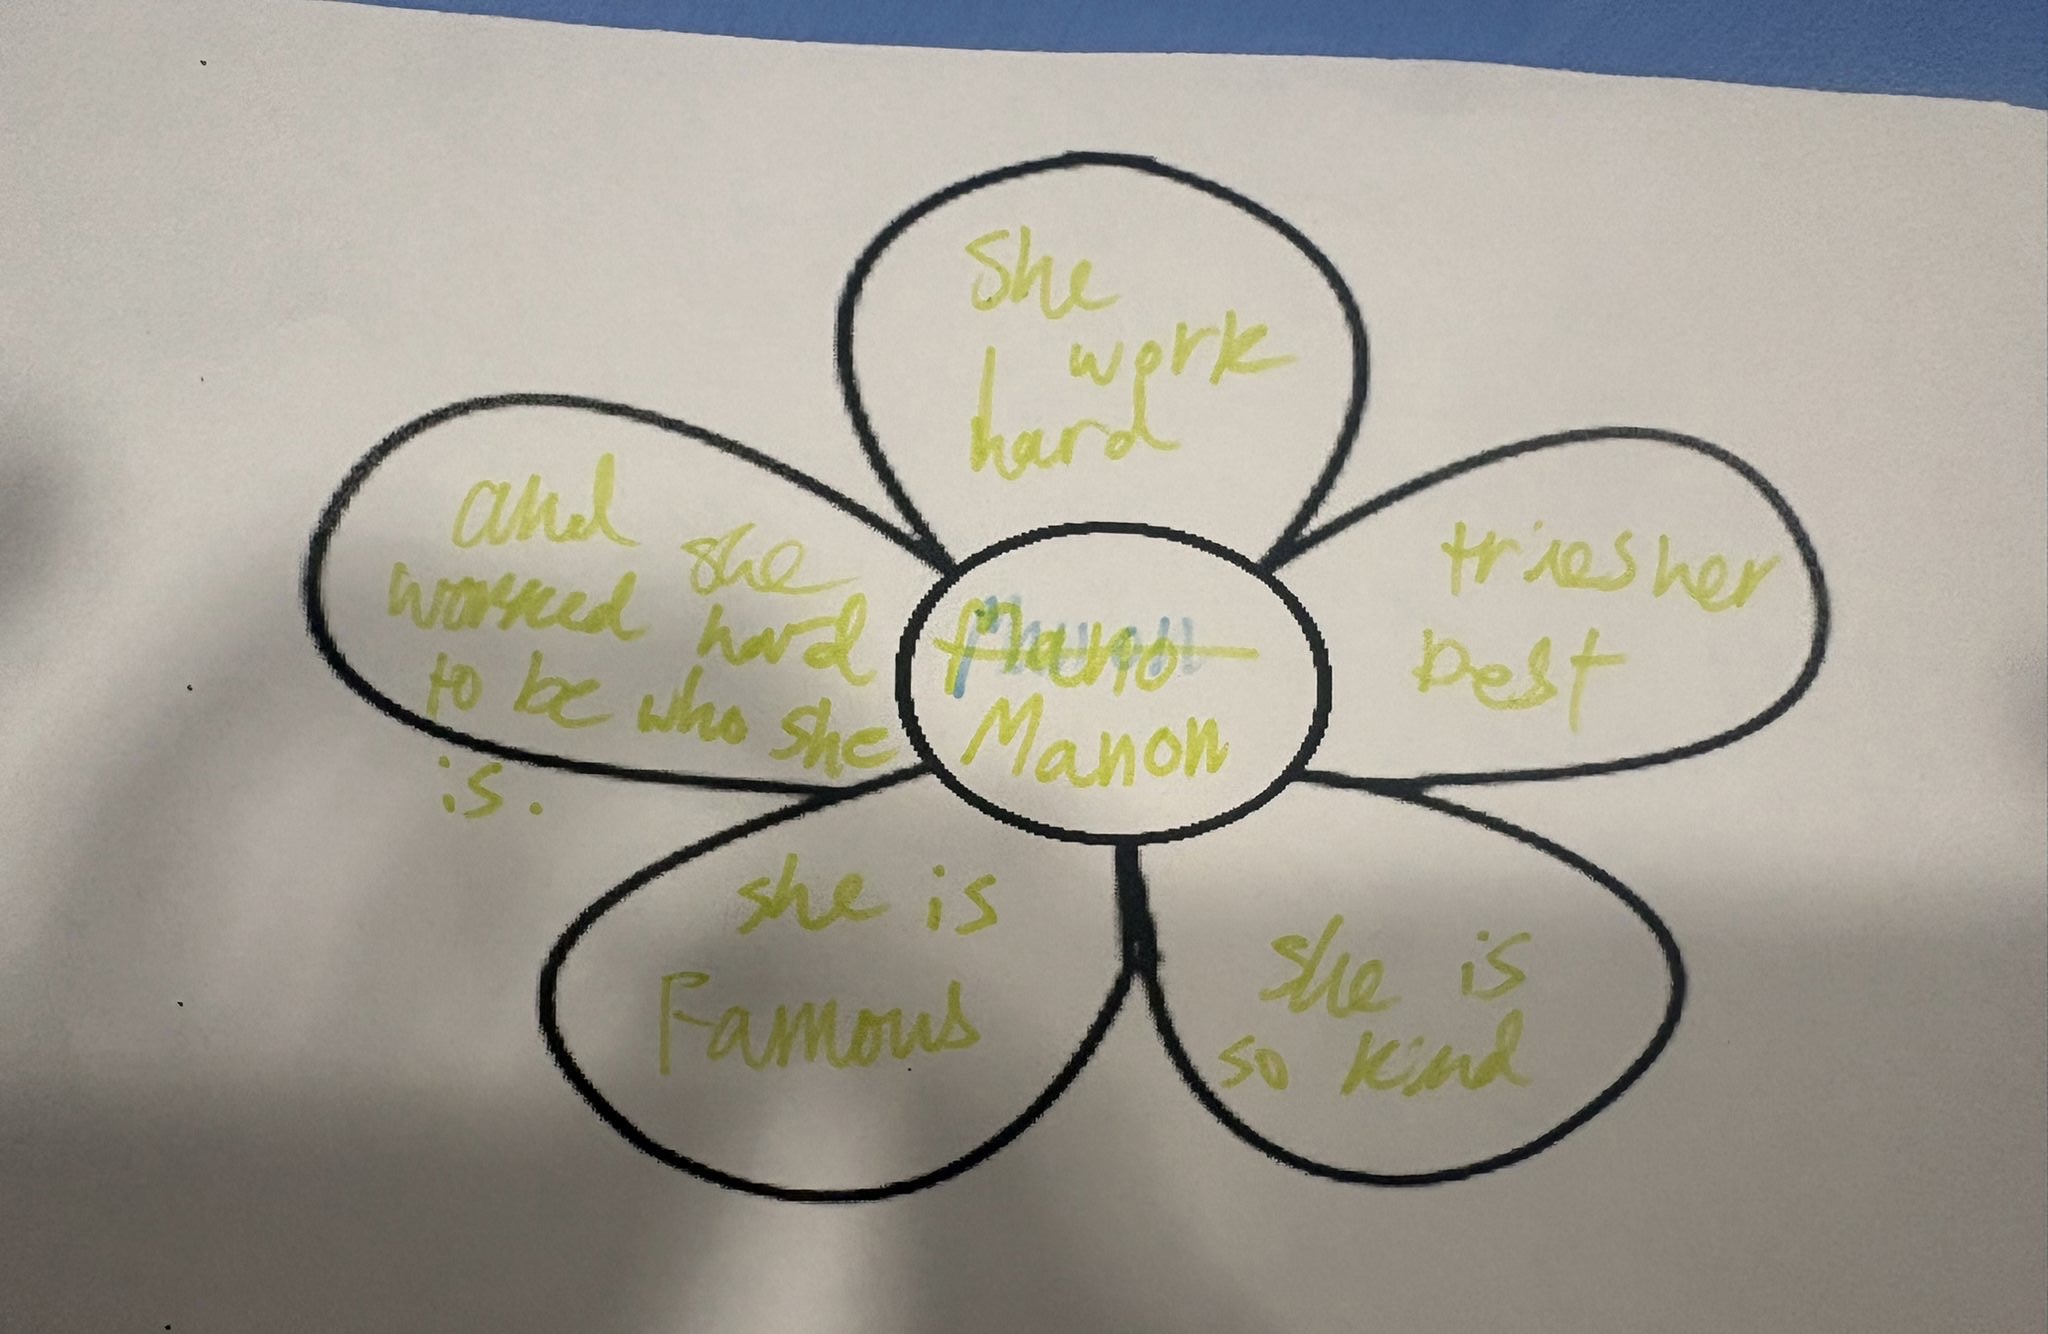 She
work
hard
triesher
best
she is
so kind
she is
Famous
and she
worked hard
to be who she
is.
Mano
Manon